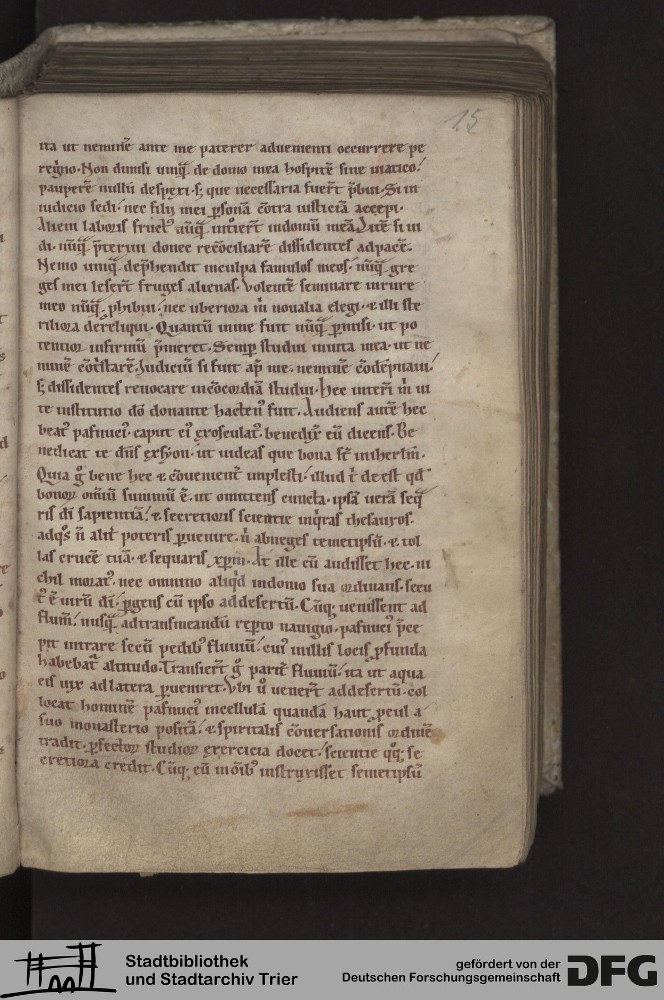 15
ita ut neminē ante me paterer advenienti occurrere pe
regrino. Non dimisi umq̄ de domo mea hospitē sine viatico.
pauperē nullū despexi. s; que necessaria fuer̄t p̄bui. Si in
iudicio sedi. nec filii mei ꝑsonā c̄tra iusticiā accepi.
Alieni laboris fruct᷒ nūq̄ int̄ier̄t indomū meā. Litē si iu
di. nūq̄ p̄terivi donec recōciliarē dissidentes ad pacē.
Nemo umq̄ dep̄hendit inculpa famulos meos. nūq̄ gre
ges mei leser̄t fruges alienas. Volentē seminare inrure
meo nūq̄ ꝓhibui. nec uberiora m̄ novalia elegi. & illi ste
riliora dereliqui. Quantū inme fuit nūq̄ ꝑmisi. ut po
tentior infirmū p̄meret. Semꝑ studui invita mea. ut ne
minē cōtstarē. Iudiciū si fuit ap̄ me. neminē cōdēpnavi.
s; dissidentes revocare incōcordiā studui. Hec interī m̄ vi
te institutio dō donante hacten᷒ fuit. Audiens autē hec
beat᷒ pafnuci᷒. caput ei᷒ exosculat᷒. benedix̄ eū dicens. Be
nedicat te dn̄s exsyon. ut videas que bona st̄ inihertm̄.
Quia ḡ bene hec & cōvenient̄ implesti. illud t̄ de est qd̄
bonorum om̄iū summū ē. ut omittens cuncta. ipsā verā seq̄
ris dī sapientiā. & secretioris scientie inq̄ras thesauros.
adq᷒s n̄ alit̄ poteris ꝑvenire. n̄ abneges temetipsū. & tol
las crucē tuā. & sequaris xp̄m. At ille cū audisset hec. ni
chil morat᷒. nec omnino aliqd̄ indomo sua ordinans. secu
t᷒ ē virū dī. ꝑgens cū ipso ad desertū. Cūq; venissent ad
fluviū. nusq̄ ad transmeandū reꝑto navigio. pafnuci᷒ p̄ce
pit intrare secū pedib᷒ fluviū. cui᷒ in illis locis ꝓfunda
habebat᷒ altitudo. Transier̄t ḡ parit̄ fluviū. ita ut aqua
eis vix ad latera ꝑveniret. Vbi v̄ vener̄t ad desertū. col
locat hominē pafnuci᷒ incellulā quandā haut ꝓcul a
suo monasterio positā. & spiritalis cōversationis ordinē
tradit. ꝑfectiorum studiorum exercicia docet. scientie q᷒q; se
cretiora credit. Cūq; eū in ōib᷒ instruxisset semetipsū
Stadtbibliothek
und Stadtarchiv Trier
gefördert von der
Deutschen Forschungsgemeinschaft
DFG